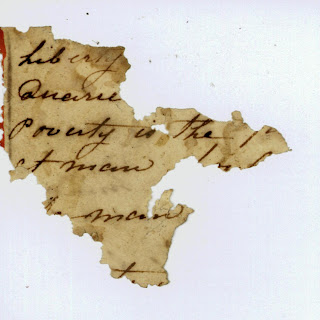 Liberty
Quarie
Poverty is the
at man
man